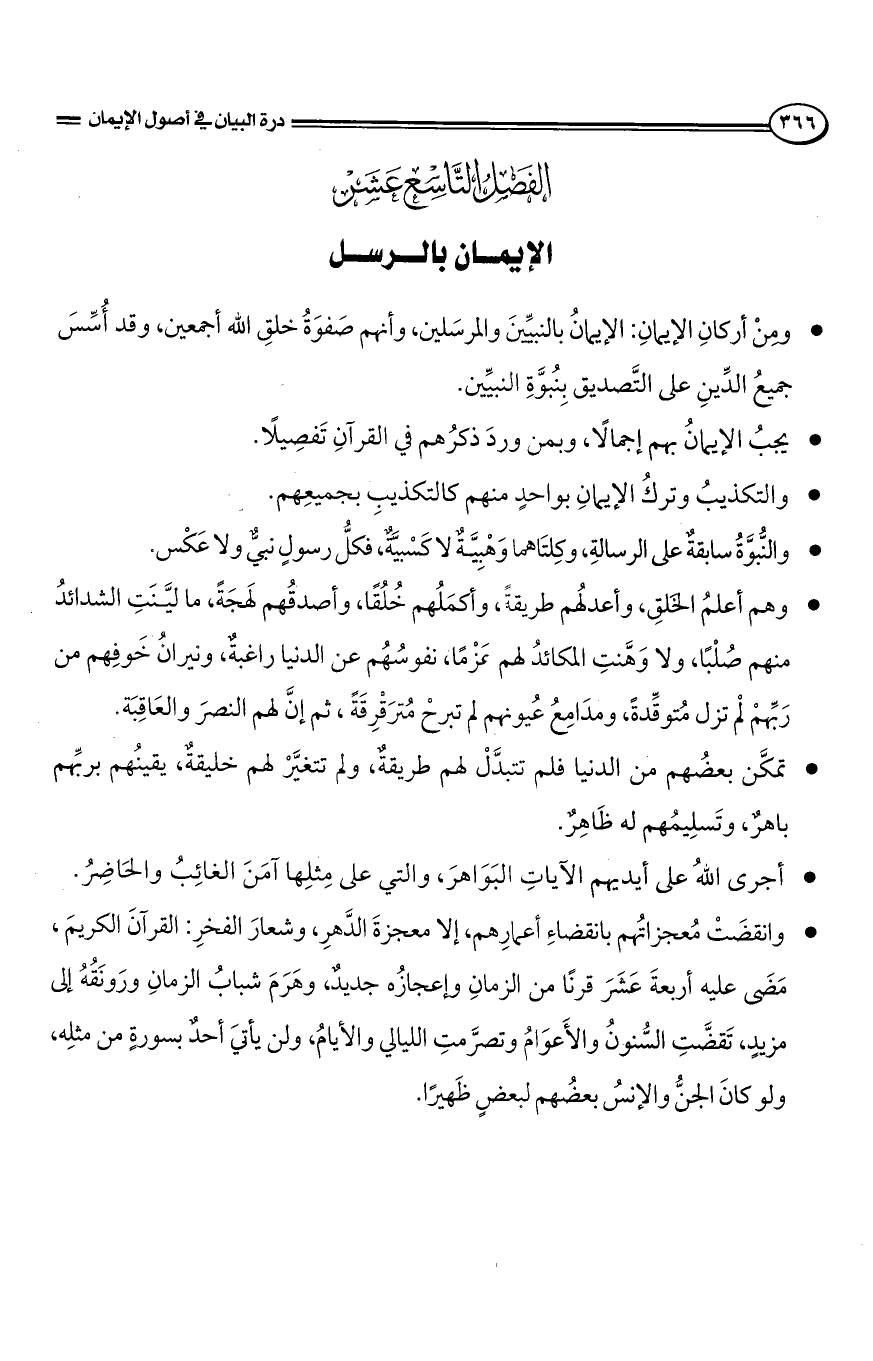 ٣٦٦ درة البيان في أصول الإيمان
الفَصْلُ التَّاسِعَ عَشَرَ
الإيمـان بالـرسـل
• ومِنْ أركانِ الإيمانِ: الإيمانُ بالنبيِّينَ والمرسَلين، وأنهم صَفوَةُ خلقِ الله أجمعين، وقد أُسِّسَ
جميعُ الدِّينِ على التَّصديق بِنُبوَّةِ النبيِّين.
• يجبُ الإيمانُ بهم إجمالًا، وبمن وردَ ذكرُهم في القرآنِ تَفصِيلًا.
• والتكذيبُ وتركُ الإيمانِ بواحدٍ منهم كالتكذيبِ بجميعِهم.
• والنُّبوَّةُ سابقةٌ على الرسالةِ، وكِلتَاهما وَهْبِيَّـةٌ لا كَسْبيَّةٌ، فكلُّ رسولٍ نبيٌّ ولا عَكْس.
• وهم أعلمُ الخَلقِ، وأعدلُهم طريقةً، وأكمَلُهم خُلُقًا، وأصدقُهم لَهجَةً، ما ليَّـنَتِ الشدائدُ
منهم صُلْبًا، ولا وَهَّنتِ المكائدُ لهم عَزْمًا، نفوسُهُم عن الدنيا راغبةٌ، ونيرانُ خَوفِهم من
رَبِّهِمْ لَمْ تزل مُتوقِّدةً، ومدَامِعُ عُيونهم لم تبرحْ مُترَقْرِقَةً ، ثم إنَّ لهم النصرَ والعَاقِبَة.
• تمكَّن بعضُهم من الدنيا فلم تتبدَّلْ لهم طريقةٌ، ولم تتغيَّرْ لهم خليقةٌ، يقينُهم بربِّهم
باهرٌ، وتَسلِيمُهم له ظَاهِرٌ.
• أجرى اللهُ على أيديهم الآياتِ البَوَاهرَ، والتي على مِثلِها آمَنَ الغائِبُ والحَاضِرُ.
• وانقضَتْ مُعجزاتُهم بانقضاءِ أعمارِهم، إلا معجزةَ الدَّهرِ، وشعارَ الفخرِ: القرآنَ الكريمَ ،
مَضَى عليه أربعةَ عَشَرَ قرنًا من الزمانِ وإعجازُه جديدٌ، وهَرَمَ شبابُ الزمانِ ورَونَقُهُ إلى
مزيدٍ، تَقضَّتِ السُّنونُ والأَعوَامُ وتصرَّمتِ الليالي والأيامُ، ولن يأتيَ أحدٌ بسورةٍ من مثلِه،
ولو كانَ الجنُّ والإنسُ بعضُهم لبعضٍ ظَهيرًا.